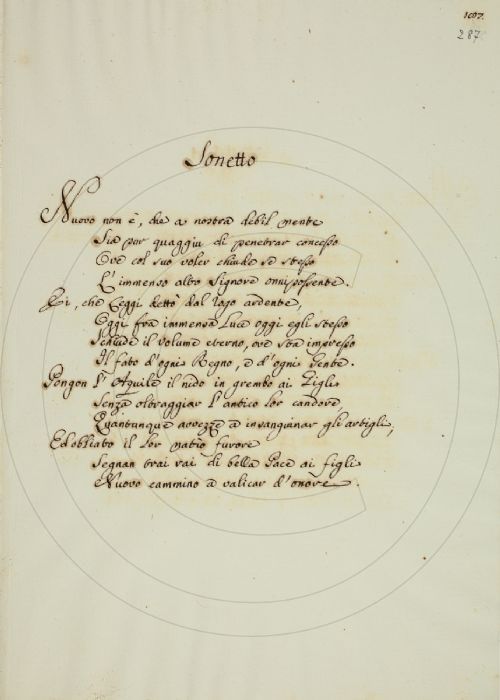 107.
287
Sonetto
Nuovo non è, che a nostra debil mente
Sia pur quaggiu di penetrar concesso
Ove col suo voler chiude se stesso
L'immenso alto Signore onnipossente.
Ei, che Leggi dettò dal rogo ardente,
Oggi fra immensa Luce oggi egli stesso
Schiude il volume eterno, ove sta impresso
Il fato d'ogni Regno, e d'ogni Gente.
Pongon l'Aquile il nido in grembo ai Gigli
Senza oltraggiar l'antico lor candore,
Quantunque avvezze a insanguinar gli artigli;
Ed obliato il lor natio furore
Segnan trai rai di bella Pace ai figli
Nuovo cammino a valicar d'onore.